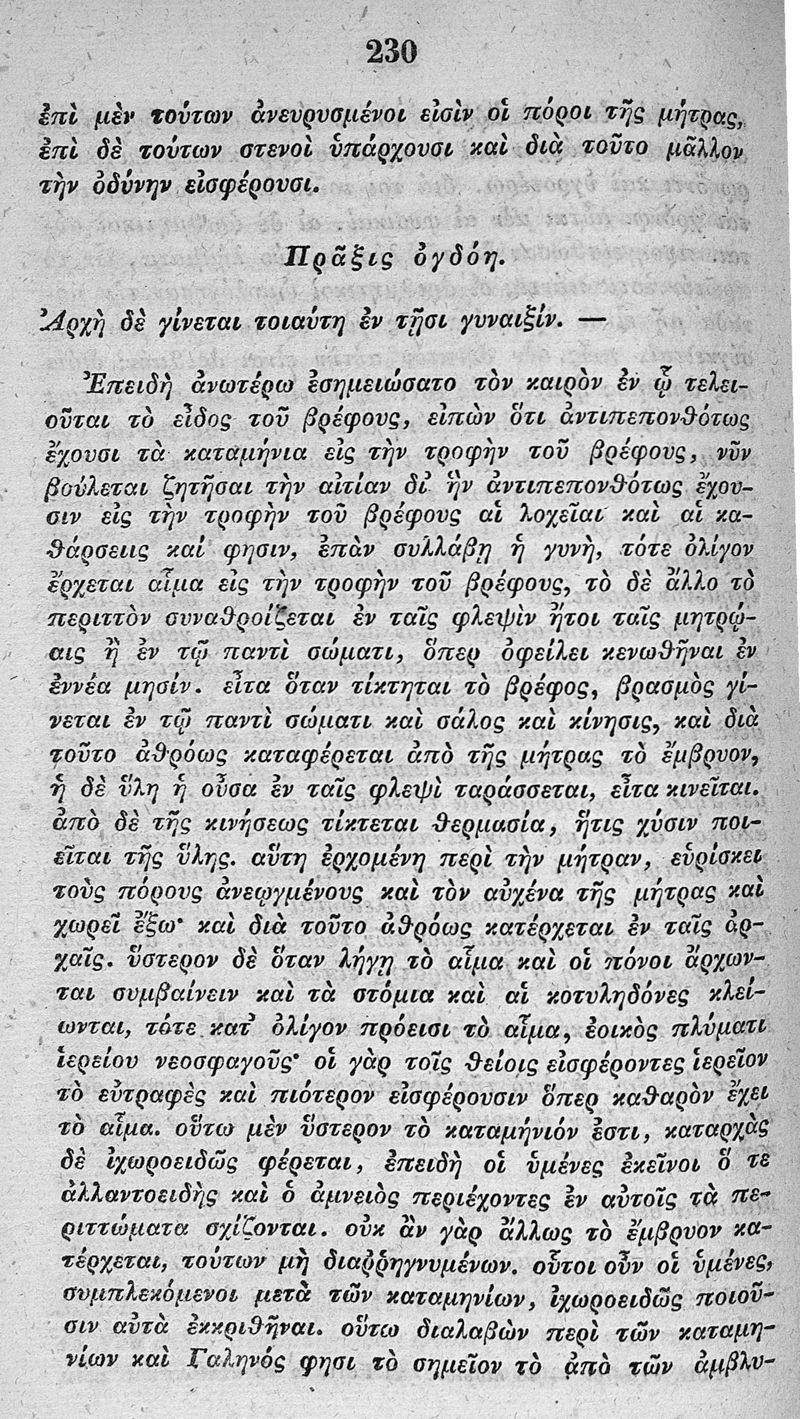 230
ἐπὶ μὲν τούτων ἀνευρυσμένοι εἰσὶν οἱ πόροι τῆς μήτρας,
ἐπὶ δὲ τούτων στενοὶ ὑπάρχουσι καὶ διὰ τοῦτο μᾶλλον
τὴν ὀδύνην εἰσφέρουσι.
Πρᾶξις ὀγδόη.
Ἀρχὴ δὲ γίνεται τοιαύτη ἐν τῇσι γυναιξίν. —
Ἐπειδὴ ἀνωτέρω ἐσημειώσατο τὸν καιρὸν ἐν ᾧ τελει-
οῦται τὸ εἶδος τοῦ βρέφους, εἰπὼν ὅτι ἀντιπεπονθότως
ἔχουσι τὰ καταμήνια εἰς τὴν τροφὴν τοῦ βρέφους, νῦν
βούλεται ζητῆσαι τὴν αἰτίαν δι᾽ ἣν ἀντιπεπονθότως ἔχου-
σιν εἰς τὴν τροφὴν τοῦ βρέφους αἱ λοχεῖαι καὶ αἱ κα-
θάρσειις καί φησιν, ἐπὰν συλλάβῃ ἡ γυνὴ, τότε ὀλίγον
ἔρχεται αἷμα εἰς τὴν τροφὴν τοῦ βρέφους, τὸ δὲ ἄλλο τὸ
περιττὸν συναθροίζεται ἐν ταῖς φλεψὶν ἤτοι ταῖς μητρῴ-
αις ἢ ἐν τῷ παντὶ σώματι, ὅπερ ὀφείλει κενωθῆναι ἐν
ἐννέα μησίν. εἶτα ὅταν τίκτηται τὸ βρέφος, βρασμὸς γί-
νεται ἐν τῷ παντὶ σώματι καὶ σάλος καὶ κίνησις, καὶ διὰ
τοῦτο ἀθρόως καταφέρεται ἀπὸ τῆς μήτρας τὸ ἔμβρυον,
ἡ δὲ ὕλη ἡ οὖσα ἐν ταῖς φλεψὶ ταράσσεται, εἶτα κινεῖται.
ἀπὸ δὲ τῆς κινήσεως τίκτεται θερμασία, ἥτις χύσιν ποι-
εῖται τῆς ὕλης. αὕτη ἐρχομένη περὶ τὴν μήτραν, εὑρίσκει
τοὺς πόρους ἀνεῳγμένους καὶ τὸν αὐχένα τῆς μήτρας καὶ
χωρεῖ ἔξω· καὶ διὰ τοῦτο ἀθρόως κατέρχεται ἐν ταῖς ἀρ-
χαῖς. ὕστερον δὲ ὅταν λήγῃ τὸ αἷμα καὶ οἱ πόνοι ἄρχων-
ται συμβαίνειν καὶ τὰ στόμια καὶ αἱ κοτυληδόνες κλεί-
ωνται, τότε κατ᾽ ὀλίγον πρόεισι τὸ αἷμα, ἐοικὸς πλύματι
ἱερείου νεοσφαγοῦς· οἱ γὰρ τοῖς θείοις εἰσφέροντες ἱερεῖον
τὸ εὐτραφὲς καὶ πιότερον εἰσφέρουσιν ὅπερ καθαρὸν ἔχει
τὸ αἷμα. οὕτω μὲν ὕστερον τὸ καταμήνιόν ἐστι, καταρχὰς
δὲ ἰχωροειδῶς φέρεται, ἐπειδὴ οἱ ὑμένες ἐκεῖνοι ὅ τε
ἀλλαντοειδὴς καὶ ὁ ἀμνειὸς περιέχοντες ἐν αὐτοῖς τὰ πε-
ριττώματα σχίζονται. οὐκ ἂν γὰρ ἄλλως τὸ ἔμβρυον κα-
τέρχεται, τούτων μὴ διαῤῥηγνυμένων. οὗτοι οὖν οἱ ὑμένες,
συμπλεκόμενοι μετὰ τῶν καταμηνίων, ἰχωροειδῶς ποιοῦ-
σιν αὐτὰ ἐκκριθῆναι. οὕτω διαλαβὼν περὶ τῶν καταμη-
νίων καὶ Γαληνός φησι τὸ σημεῖον τὸ ἀπὸ τῶν ἀμβλυ-